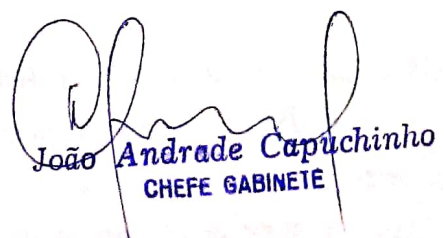 João Andrade Capuchinho
CHEFE GABINETE